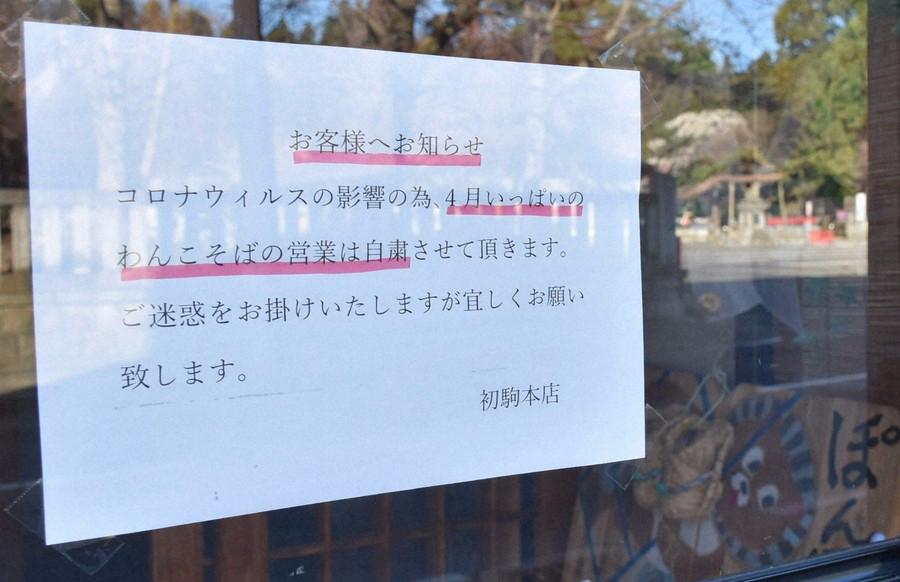 お客様へお知らせ
コロナウィルスの影響の為、4月いっぱいの
わんこそばの営業は自粛させて頂きます。
ご迷惑をお掛けいたしますが宜しくお願い
致します。
初駒本店
ぽん